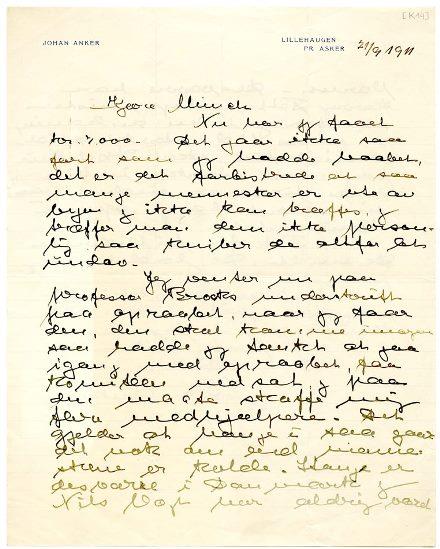 [K143]
JOHAN ANKER
LILLEHAUGEN
PR. ASKER
21/9 1911
Kjære Munch
Nu har jeg faaet
Det gaar ikke saa
fort som jeg hadde haabet,
det er det at saa
mange mennesker er ute av
byen ikke kan træffes,
træffer man dem ikke person-
lig saa kniber de altfor let
undav.
Jeg venter nu paa
professor Brøggers underskrift
paa opraabet, naar jeg faar
den, den skal komme imorgen
saa hadde jeg tænkt at gaa
igang med opraabet, faa
komiteen nedsat, paa
den maate skaffe mig
flere medhjælpere. Det
gjelder at hænge i saa gaar
det nok om end
er kolde. Stang er
desværre i Danmark
Nils Vogt har aldrig